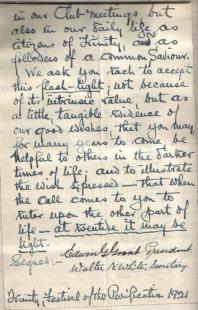 in our Club meetings, but
also in our daily life, as
citizens of Trinity, and as
followers of a common Saviour.
We ask you each to accept
this flash-light, not because
of its intrinsic value, but as
a little, tangible evidence of
our good wishes, that you may
for many years to come be
helpful to others in the darker
times of life; and to illustrate
the wish expressed — that when
the call comes to you to
enter upon the other part of
life — at eventide it may be
light.
Signed:— Edwin G Grant President
Walter N White, Secretary
Trinity, Festival of the Purification 1921